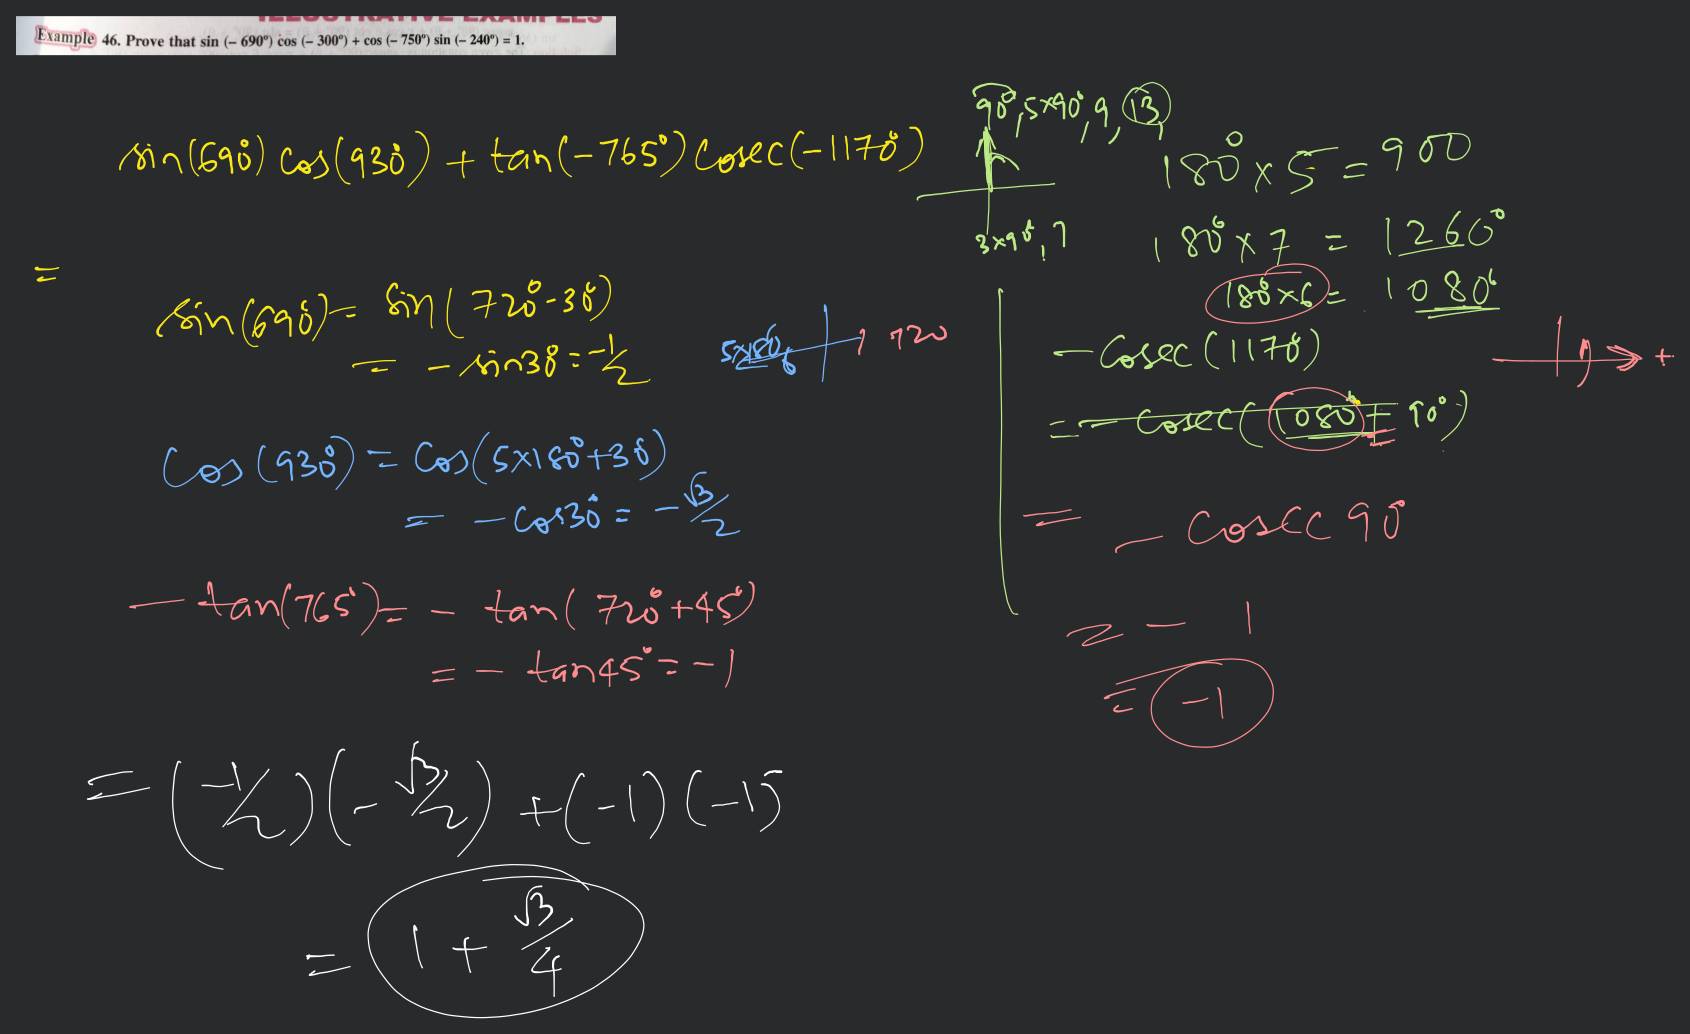 ILLUSTRATIVE EXAMPLES
Example 46. Prove that sin (– 690º) cos (– 300º) + cos (– 750º) sin (– 240º) = 1.
sin(690°) cos(930°) + tan(-765°) cosec(-1170°)
=
sin(690°) = sin(720°-30°)
= -sin30° = -1/2
5×180°
720
cos(930°) = cos(5×180°+30°)
= -cos30° = -√3/2
-tan(765°) = -tan(720°+45°)
= -tan45° = -1
= (-1/2)(-√3/2) + (-1)(-1)
= 1 + √3/4
90°, 5×90°, 9, 13,
3×90°, 7
180° × 5 = 900
180° × 7 = 1260°
180° × 6 = 1080°
-cosec(1170°)
= -cosec(1080° + 90°)
+
= -cosec 90°
= -1
= -1